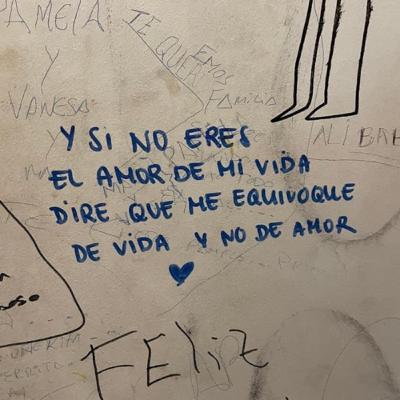 PAMELA
Y
VANESA
TE
FAMILIA
ALI
Y SI NO ERES
EL AMOR DE MI VIDA
DIRE QUE ME EQUIVOQUE
DE VIDA Y NO DE AMOR
FELIZ